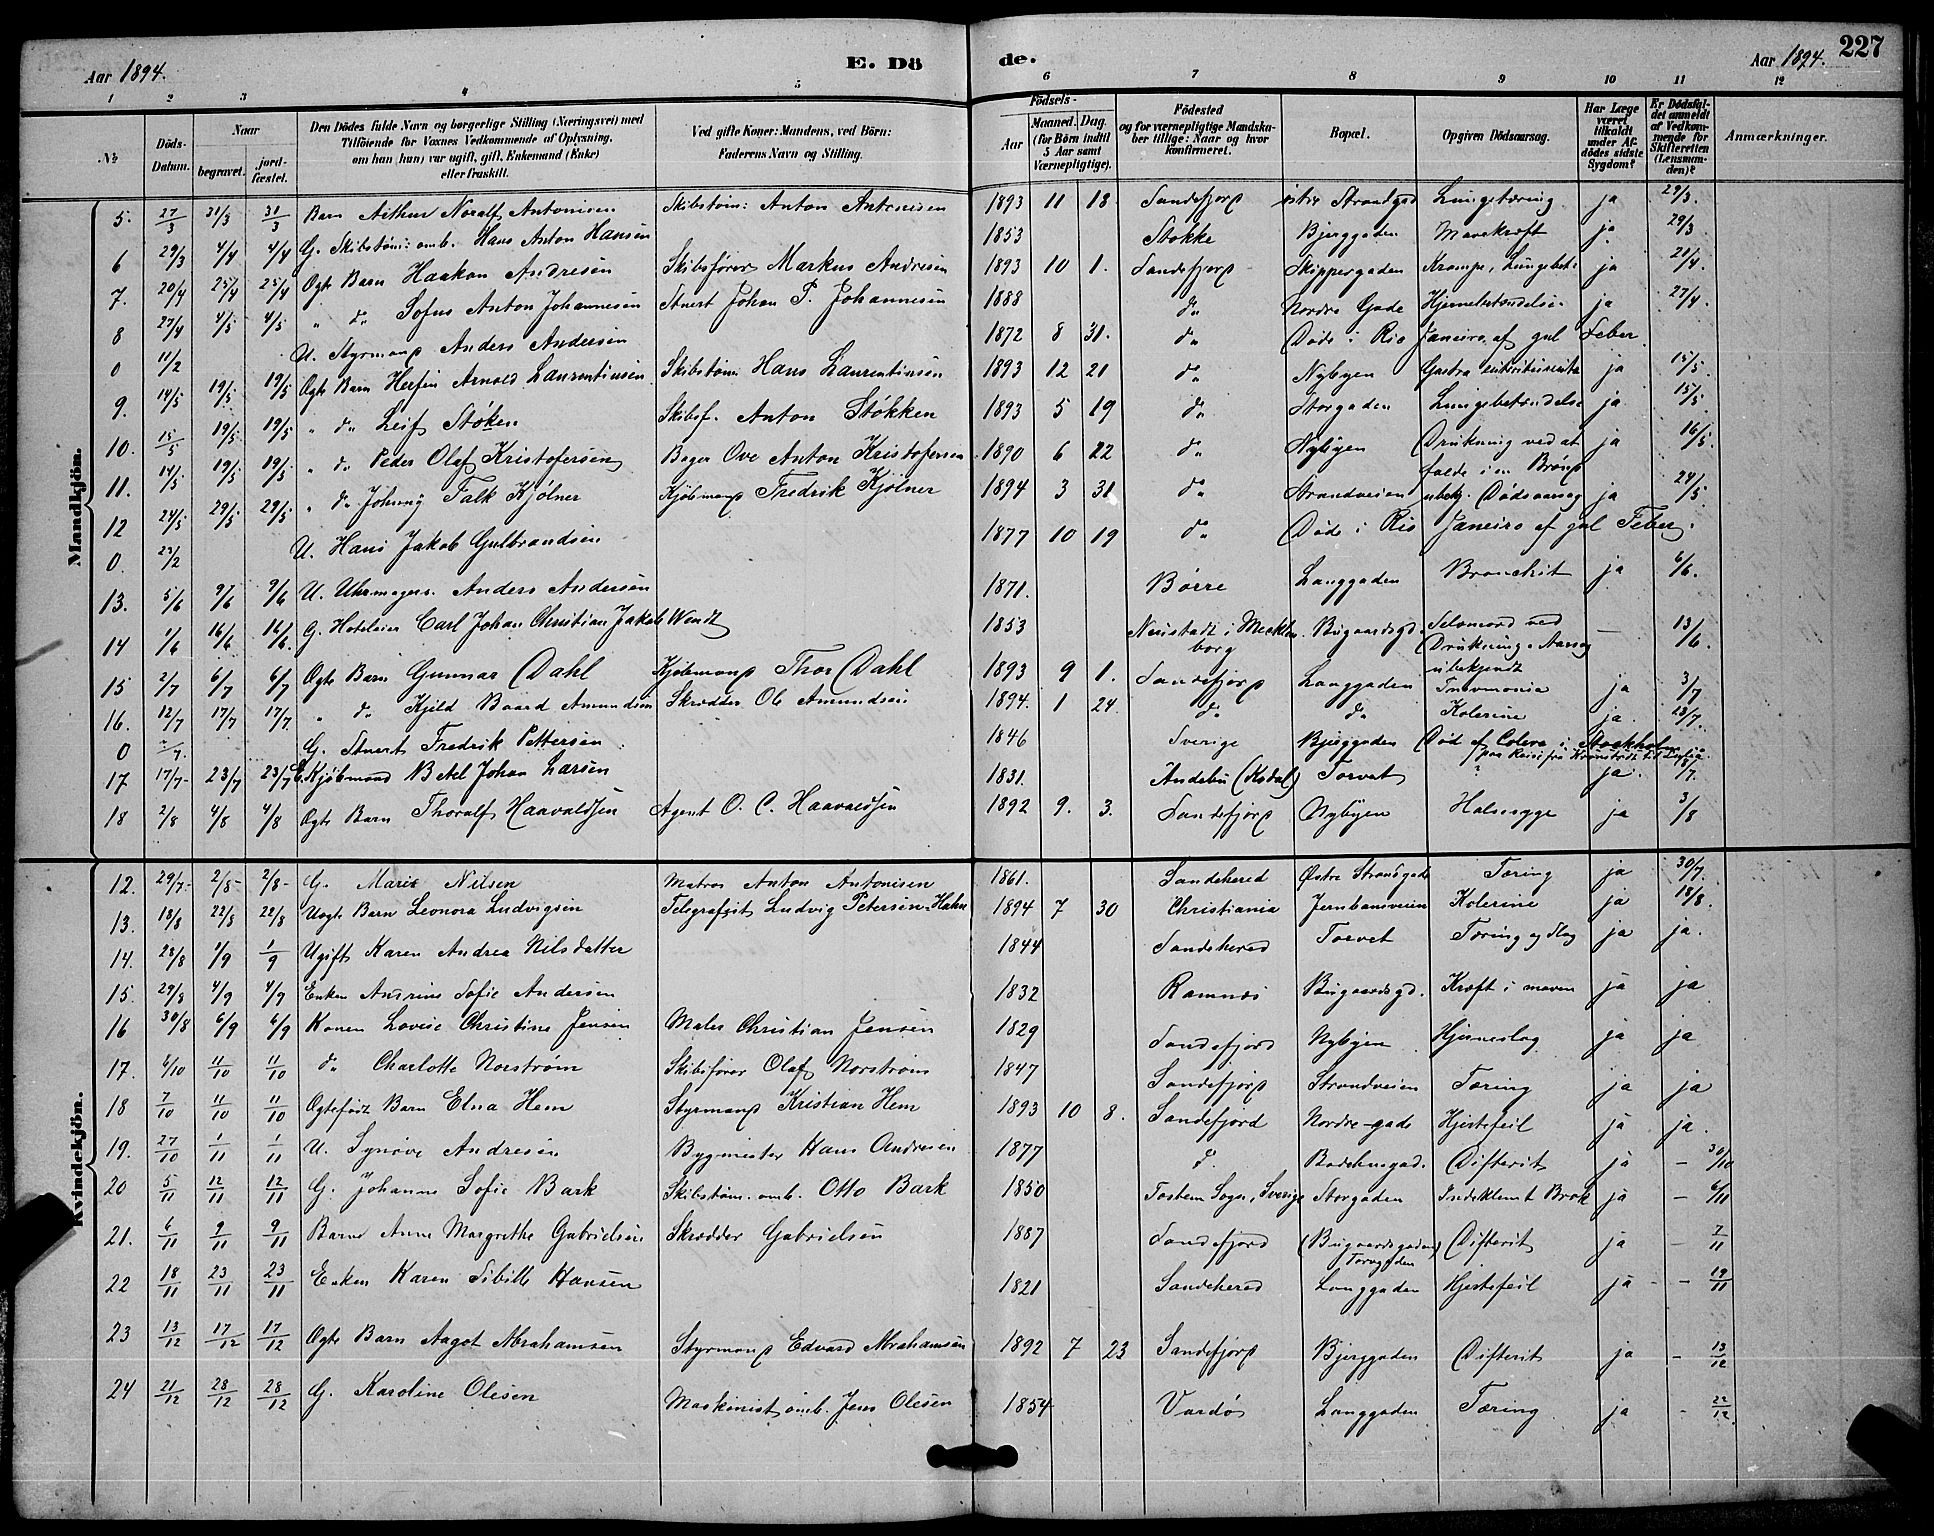 Aar 1894.
E. Dö
de.
Aar 1894.
227
1 2 3 4 5 6 7 8 9 10 11 12
№
Döds-Datum.
Naar
begravet.
jord-fæstet.
Den Dödes fulde Navn og borgerlige Stilling (Næringsvei) med
Tilföiende for Voxnes Vedkommende af Oplysning,
om han (hun) var ugift, gift, Enkemand (Enke)
eller fraskilt.
Ved gifte Koner: Mandens, ved Börn:
Faderens Navn og Stilling.
Födsels-
Aar
Maaned. Dag.
(for Börn indtil 5 Aar samt Værnepligtige).
Födested
og for værnepligtige Mandska-
ber tillige: Naar og hvor
konfirmeret.
Bopæl.
Opgiven Dödsaarsag.
Har Læge været tilkaldt under Af-dödes sidste Sygdom?
Er Dödsfal-det anmeldt af Vedkom-mende for Skifteretten (Lensman-den)?
Anmærkninger.
Mandkjön.
5. 27/3 31/3 31/3 Barn Arthur Noralf Antonisen Skibstøm: Anton Antonisen 1893 11 18 Sandefjord østre Strandgd Lungetæring ja 29/3.
6 29/3 4/4 4/4 G. Skibstøm: omb. Hans Anton Hansen 1853 Stokke Bjerggaden Mavekræft ja 29/3
7. 20/4 25/4 25/4 Ogte Barn Haakon Andresen Skibsfører Markus Andresen 1893 10 1. Sandefjord Skippergaden Krampe, Lungebet: ja 21/4.
8 27/4 4/5 4/5 " do Sofus Anton Johannesen Stuert Johan P. Johannesen 1888 do Nordre Gade Hjernebetændelse ja 27/4.
0 11/2 U. Styrmand Anders Andersen 1872 8 31. do Døde i Rio Janeiro af gul Feber
9. 14/5 19/5 19/5 Ogte Barn Herfin Arnold Laurentiusen Skibstøm. Hans Laurentiusen 1893 12 21 do Nybyen ja 15/5.
10. 15/5 19/5 19/5 " do Leif Støken Skibsf. Anton Støkken 1893 5 19 do Storgaden Lungebetændelse ja 15/5.
11. 14/5 19/5 19/5 " do Peder Olaf Kristofersen Bager Ove Anton Kristofersen 1890 6 22 do Nybyen Drukning ved at falde i en Brønd ja 16/5.
12 24/5 29/5 29/5 " do Johnny Falk Kjølner Kjøbmand Fredrik Kjölner 1894 3 31 do Strandveien ubekj. Dødsaarsag ja 24/5
0. 23/2 U. Hans Jakob Gulbrandsen 1877 10 19 do Døde i Rio Janeiro af gul Feber.
13. 5/6 9/6 9/6 U. Uhrmager. Anders Andersen 1871. Børre Langgaden Bronchit ja 6/6.
14 1/6 16/6 16/6. G. Hoteleier Carl Johan Christian Jakob Wendt 1853 Neustadt i Mecklenborg Bugaardsgd. Selvmord ved Drukning. Aarsag ubekjendt — 13/6.
15 2/7 6/7 6/7 Ogte Barn Gunnar Dahl Kjøbmand Thor Dahl 1893 9 1. Sandefjord Langgaden Pneumonia ja 3/7
16. 12/7 17/7 17/7. " do Kjeld Baard Amundsen Skrædder Ole Amundsen 1894. 1 24. do do Kolerine ja. 23/7.
0 G. Stuert Fredrik Pettersen. 1846 Sverige Bjerggaden Død af Colera i Stockholm paa Reise fra Kronstadt til
17 17/7 23/7 23/7 E. Kjøbmand Johan Larsen 1831. Andebu Torvet ? ja.
18 2/8 4/8 4/8 Ogte Barn Thoralf Haavaldsen Agent O. C. Haavaldsen 1892 9. 3. Sandefjord Nybyen Halssyge ja 3/8
Kvindekjön.
12. 29/7 2/8 2/8 G. Marie Nilsen Matros Anton Antonisen 1861. Sandehered Østre Strandgade Tæring ja 30/7.
13. 18/8 22/8 22/8 Uegte Barn Leonora Ludvigsen Telegrafist Ludvig Petersen-Hahn 1894 7 30 Christiania Jernbaneveien Kolerine ja 18/8.
14. 28/8 1/9 1/9 Ugift Karen Andrea Nilsdatter 1844 Sandehered Torvet Tæring og Slag ja ja.
15. 29/8 4/9 4/9 Enken Andrine Sofie Andersen 1832 Ramnæs Bugaardsgd. Kræft i maven ja ja
16 30/8 6/9 6/9 Konen Lovise Christine Jensen Maler Christian Jensen 1829 Sandefjord Nybyen Hjerneslag ja ja
17. 6/10 11/10 11/10 do Charlotte Norstrøm Skibsfører Olaf Norstrøm 1847 Sandefjord Strandveien Tæring ja ja
18 7/10 11/10 11/10 Ogtefødt Barn Elna Hem Styrmand Kristian Hem 1893 10 8. Sandefjord Nordre-gade Hjertefeil ja ja.
19. 27/10 1/11 1/11 U. Synøve Andresen Bygmester Hans Andresen 1877 do. Badehusgad. Difterit ja — 30/10
20 5/11 12/11 12/11 G. Johanne Sofie Bark Skibstøm. omb. Otto Bark 1850 Sogn, Sverige Storgaden Indeklemt Brok ja — 6/11
21. 6/11 9/11 9/11 Barne Anne Margrethe Gabrielsen Skrædder Gabrielsen 1887 Sandefjord (Bugaardsgaden) Torvgaden Difterit ja — 7/11
22 18/11 23/11 23/11 Enken Karen Sibille Hansen 1821 Sandehered Langgaden Hjertefeil ja — 19/11
23 13/12 17/12 17/12 Ogte Barn Aagot Abrahamsen Styrmand Edvard Abrahamsen 1892 7 23 Sandefjord Bjerggaden Difterit ja — 13/12
24 21/12 28/12 28/12 G. Karoline Olesen Maskinist omb. Jens Olesen 1854 Vardø Langgaden Tæring ja — 22/12